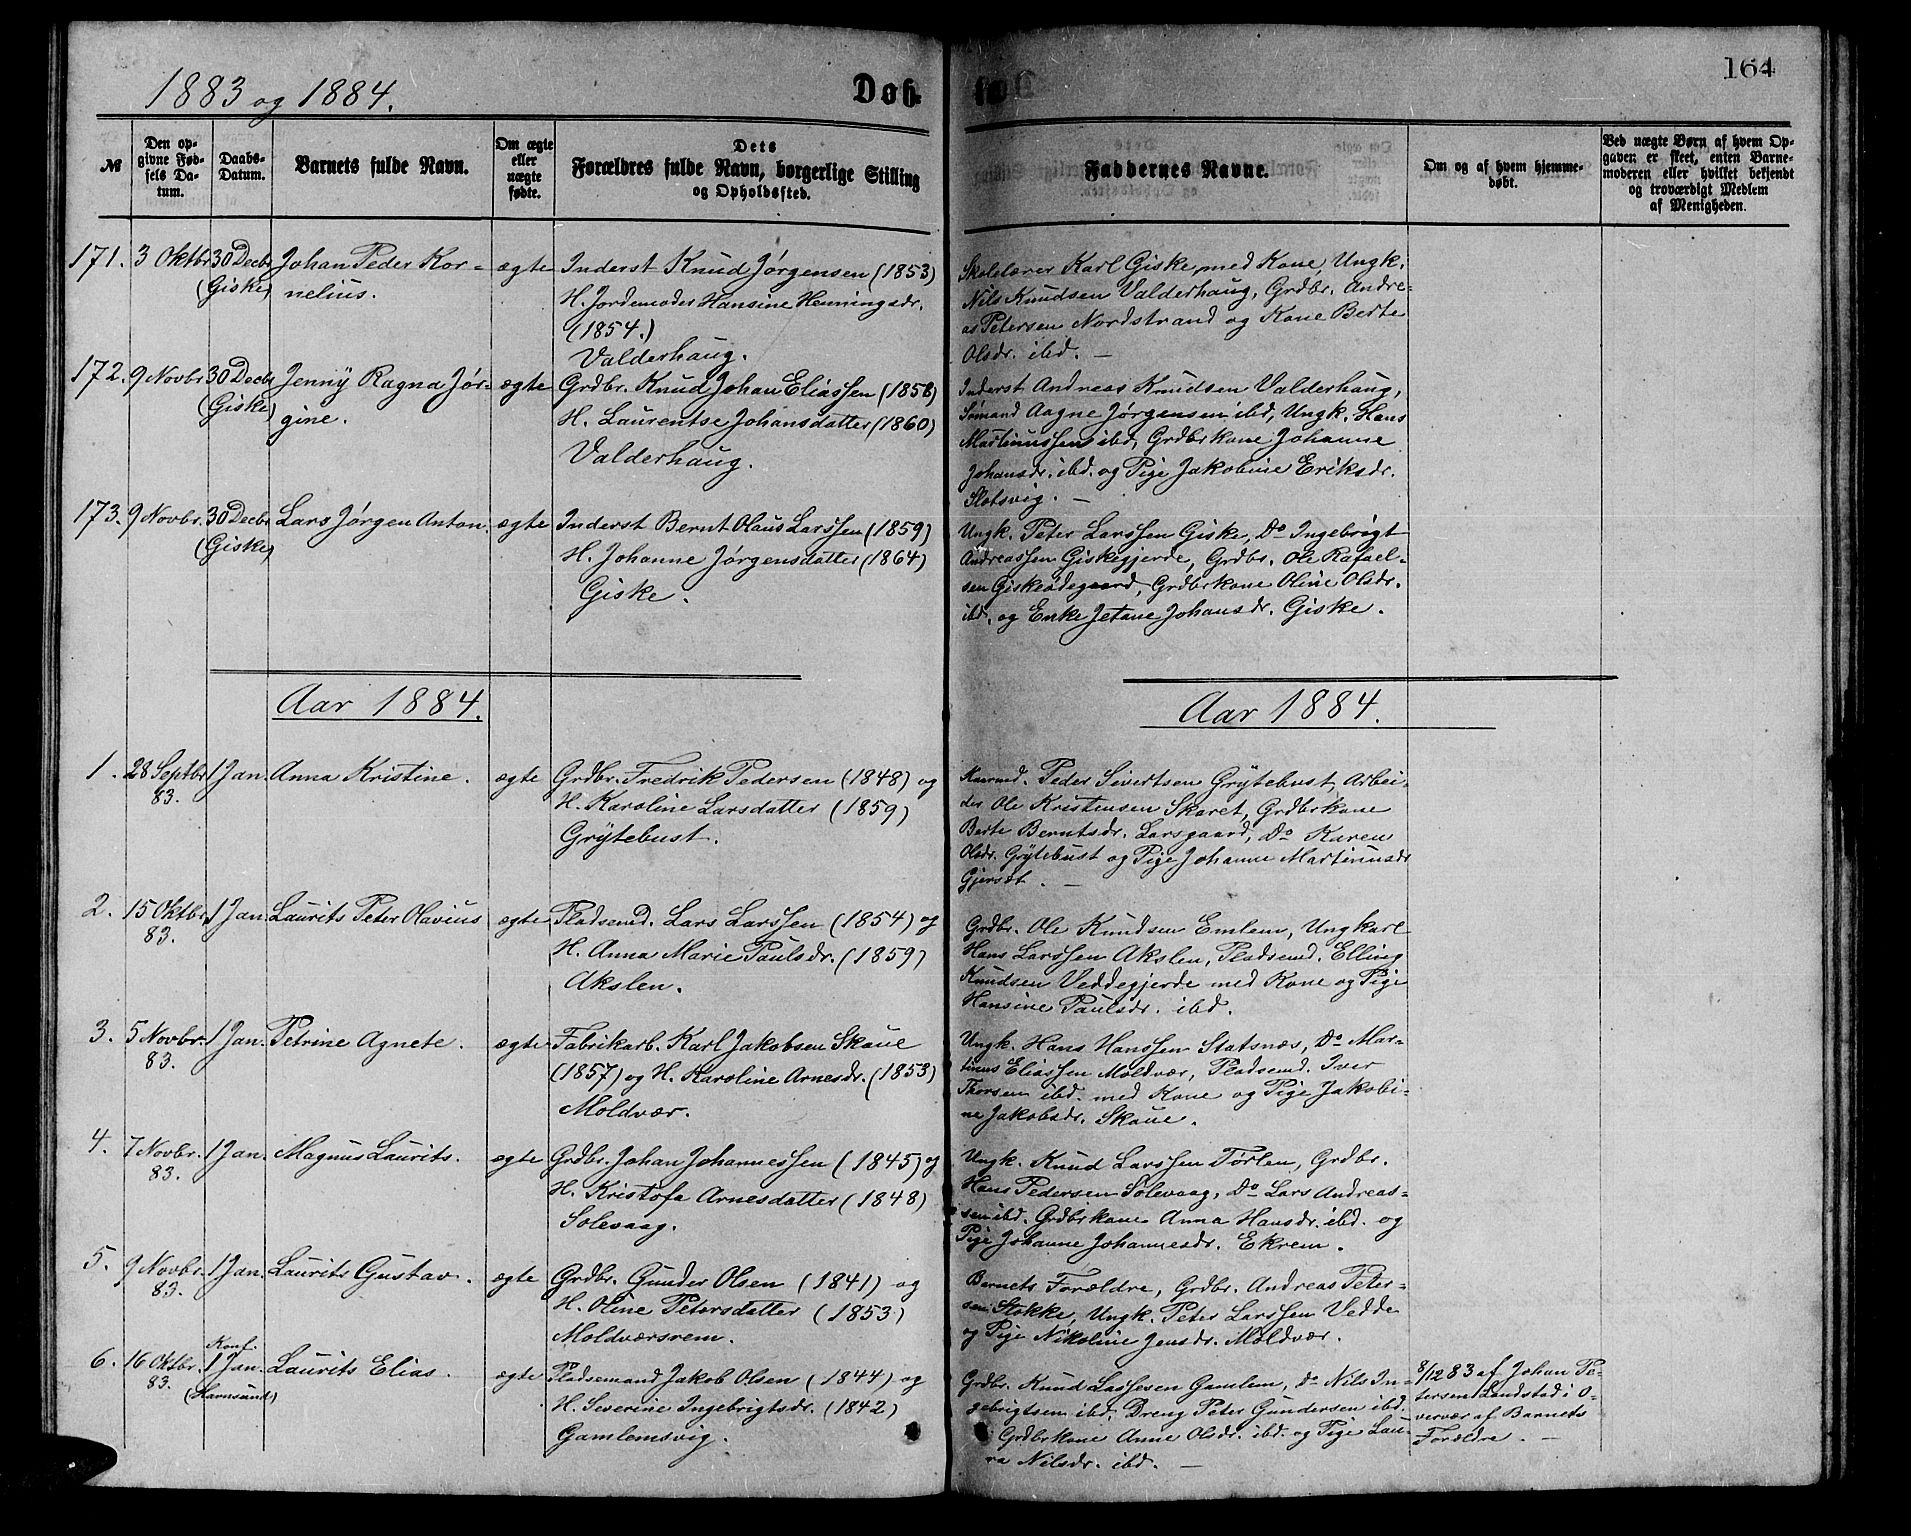 1883 og 1884.
Døb-
164
№
Den op-
givne Fød-
sels Da-
tum.
Daabs-
Datum.
Barnets fulde Navn.
Om ægte
eller
uægte
fødte.
Dets
Forældres fulde Navn, borgerlige Stilling
og Opholdssted.
Faddernes Navne.
Om og af hvem hjemme-
døbt.
Ved uægte Børn af hvem Op-
gaven er skeet, enten Barne-
moderen eller hvilket bekjendt
og troværdigt Medlem
af Menigheden.
171. 3 Oktbr 30 Decbr Johan Peder Kor-
(Giske) nelius.
ægte
Inderst Knud Jørgensen (1853)
H. Jordemoder Hansine Henningsdr.
(1854.)
Valderhaug.
Skolelærer Karl Giske med Kone, Ungk.
Nils Knudsen Valderhaug, Grdbr. Andre-
as Petersen Nordstrand og Kone Berte
Olsdr. ibd. —
172. 9 Novbr 30 Decbr Jenny Ragna Jør-
(Giske) gine.
ægte
Grdbr. Knud Johan Eliassen (1858)
H. Laurentse Johansdatter (1860)
Valderhaug.
Inderst Andreas Knudsen Valderhaug,
Sømand Aagne Jørgensen ibd, Ungk. Hans
Martinussen ibd, Grdbrkone Johanne
Johansdr. ibd. og Pige Jakobine Eriksdr.
Slotsvig. —
173. 9 Novbr. 30 Decbr Lars Jørgen Anton.
(Giske)
ægte
Inderst Bernt Olaus Larssen (1859)
H. Johanne Jørgensdatter (1864)
Giske.
Ungk. Peter Larssen Giske, Do Ingebrigt
Andreassen Giskegjerde, Grdbr. Ole Rafael-
sen Giskeødegaard, Grdbrkone Oline Olsdr.
ibd. og Enke Jetane Johansdr. Giske.
Aar 1884.
Aar 1884.
1. 28 Septbr 1 Jan. Anna Kristine.
83.
ægte
Grdbr. Fredrik Pedersen (1848) og
H. Karoline Larsdatter (1859)
Grytebust.
Kaarmd. Peder Sivertsen Grytebust, Arbei-
der Ole Kristensen Skaret, Grdbrkone
Berte Berntsdr. Larsgaard, Do Karen
Olsdr. Grytebust og Pige Johanne Martinusdr
Gjersæt. —
2. 15 Oktbr. 1 Jan. Laurits Peter Olavius
83.
ægte
Pladsemd. Lars Larssen (1854) og
H. Anna Marie Paulsdr. (1859)
Akslen.
Grdbr. Ole Knudsen Emlem, Ungkarl
Hans Larssen Akslen, Pladsemd. Elling
Knudsen Veddegjerde med Kone og Pige
Hansine Paulsdr. ibd.
3. 5 Novbr. 1 Jan. Petrine Agnete.
83.
ægte
Fabrikarb. Karl Jakobsen Skaue
(1857) og H. Karoline Arnesdr. (1853)
Moldvær.
Ungk. Hans Hanssen Statsnæs, Do Mar-
tinus Eliassen Moldvær, Pladsemd. Iver
Thorsen ibd. med Kone og Pige Jakobi-
ne Jakobsdr. Skaue.
4. 7 Novbr. 1 Jan. Magnus Laurits.
83.
ægte
Grdbr. Johan Johannessen (1845) og
H. Kristofa Arnesdatter (1848)
Solevaag.
Ungk. Knud Larssen Tørlen, Grdbr.
Hans Pedersen Solevaag, Do Lars Andreas-
sen ibd. Grdbrkone Anna Hansdr. ibd. og
Pige Johanne Johannesdr. Ekrem.
5. 9 Novbr. 1 Jan. Laurits Gustav.
83.
ægte
Grdbr. Gunder Olsen (1841) og
H. Oline Petersdatter (1853)
Moldværsrem.
Barnets Forældre, Grdbr. Andreas Peter-
sen Stokke, Ungk. Peter Larssen Vedde
og Pige Nikoline Jensdr. Moldvær.
6. 16 Oktbr. 1 Jan. Laurits Elias.
83.
Konf.
(Havnsund)
ægte
Pladsemand Jakob Olsen (1844) og
H. Severine Ingebrigtsdr. (1842)
Gamlemsvig.
Grdbr. Knud Lassesen Gamlem, do Nils In-
gebrigtsen ibd, Dreng Peter Gundersen ibd.
Grdbrkone Anne Olsdr. ibd. og Pige Lau-
ra Nilsdr. ibd. —
8/12 83 af Johan Pe-
tersen Landstad i O-
vervær af Barnets
Forældre. —